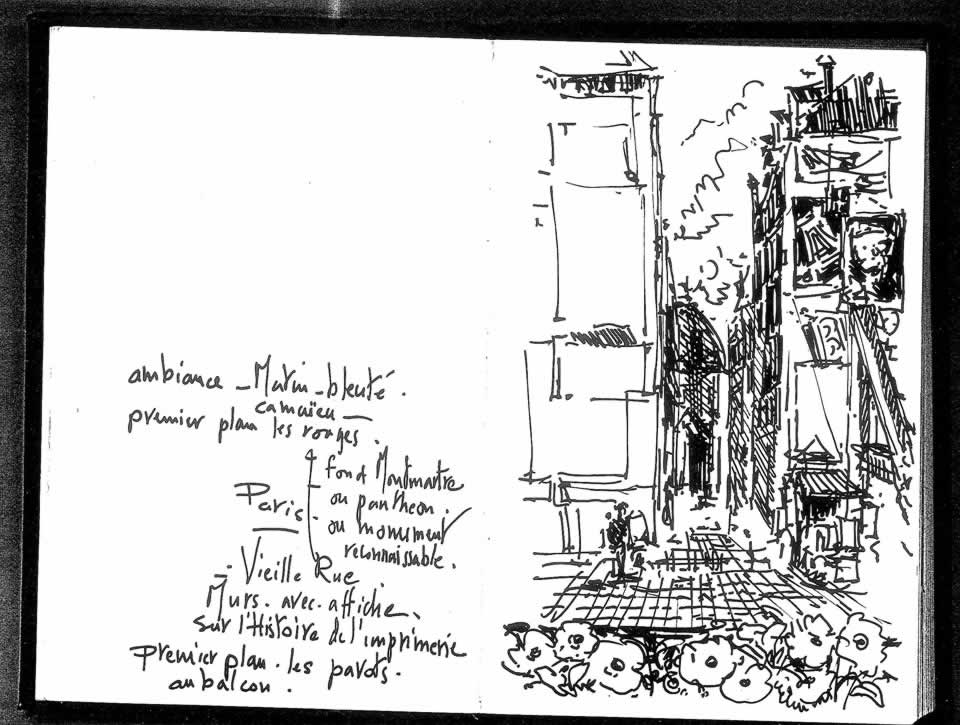 ambiance - Matin - bleuté.
camaïeu
premier plan les rouges.
fond Montmartre
ou pantheon.
ou monument
reconnaissable.
Paris
- Vieille Rue.
Murs. avec. affiche.
sur l'Histoire de l'imprimerie
premier plan. les pavots.
au balcon.